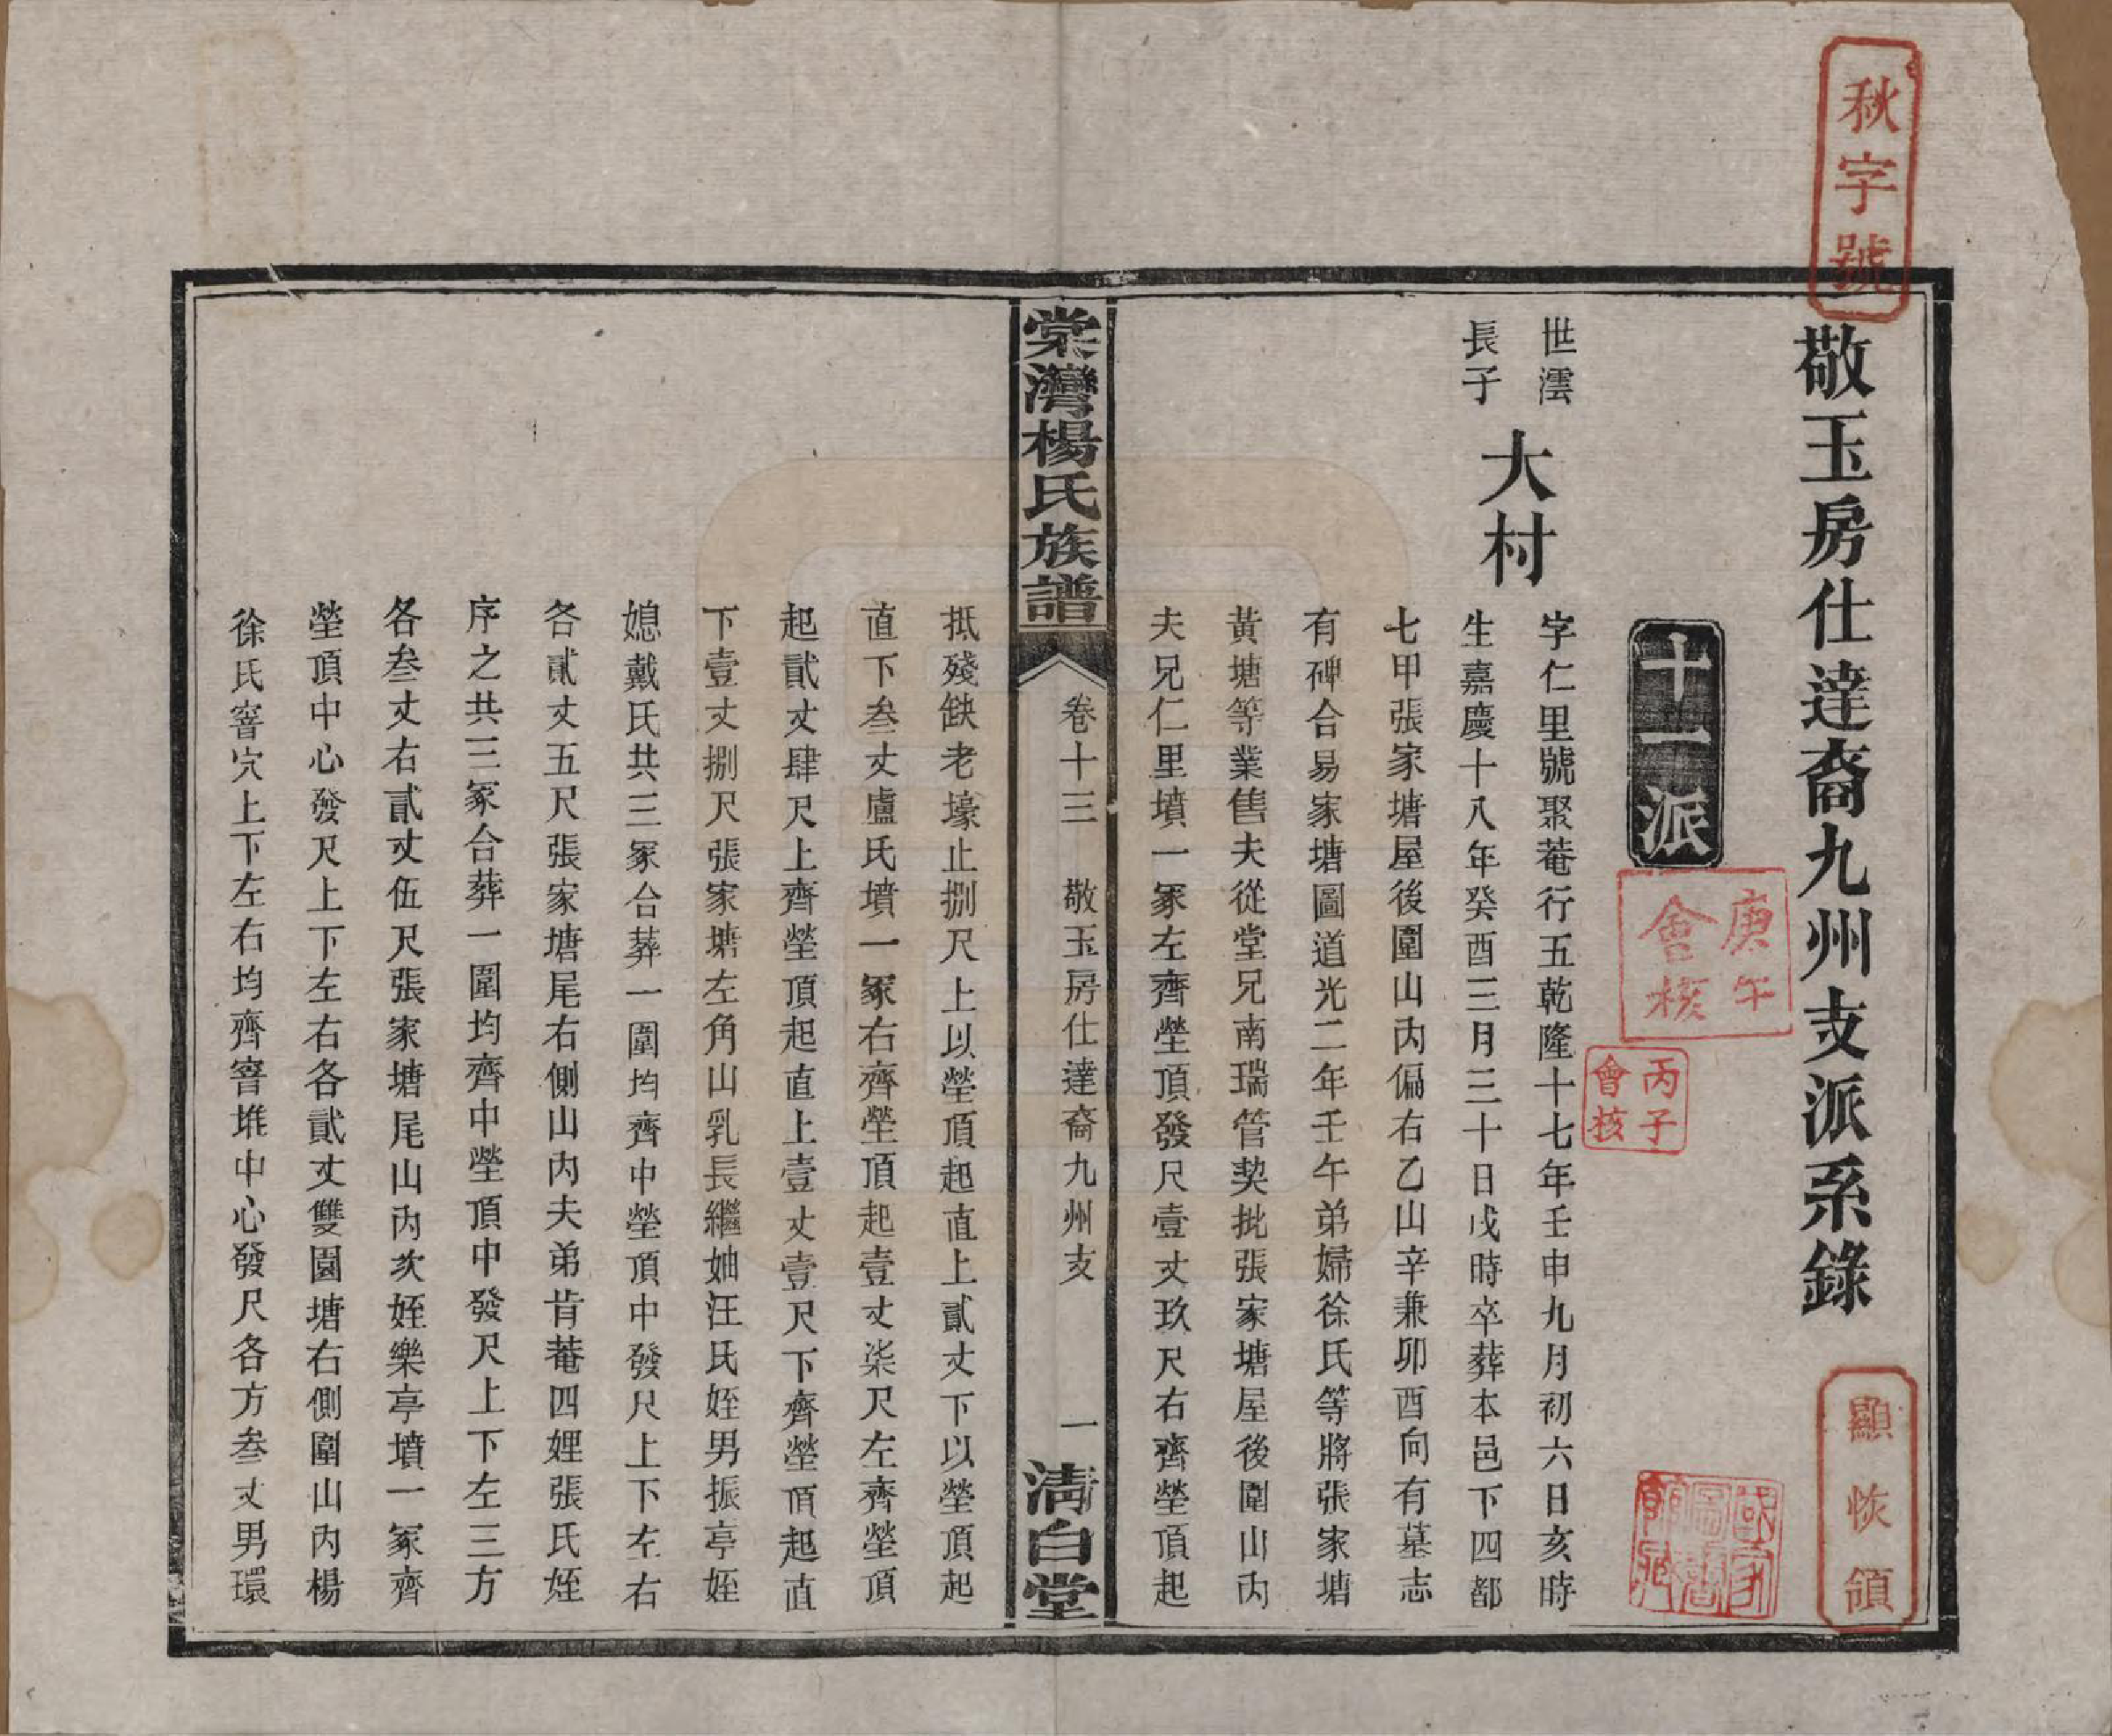 秋字號
敬玉房仕達裔九州支派系錄
顯恢領
十一派
庚午
會核
丙子
會核
國家
圖書
館藏
世澐
長子
大村
字仁里號聚菴行五乾隆十七年壬申九月初六日亥時
生嘉慶十八年癸酉三月三十日戌時卒葬本邑下四都
七甲張家塘屋後圍山內偏右乙山辛兼卯酉向有墓志
有碑合易家塘圖道光二年壬午弟婦徐氏等將張家塘
黃塘等業售夫從堂兄南瑞管契批張家塘屋後圍山內
夫兄仁里墳一冢左齊塋頂發尺壹丈玖尺右齊塋頂起
棠灣楊氏族譜
卷十三 敬玉房仕達裔九州支
一
清白堂
抵殘缺老壕止捌尺上以塋頂起直上貳丈下以塋頂起
直下叁丈盧氏墳一冢右齊塋頂起壹丈柒尺左齊塋頂
起貳丈肆尺上齊塋頂起直上壹丈壹尺下齊塋頂起直
下壹丈捌尺張家塘左角山乳長繼妯汪氏姪男振亭姪
媳戴氏共三冢合葬一圍均齊中塋頂中發尺上下左右
各貳丈五尺張家塘尾右側山內夫弟肯菴四娌張氏姪
序之共三冢合葬一圍均齊中塋頂中發尺上下左三方
各叁丈右貳丈伍尺張家塘尾山內次姪樂亭墳一冢齊
塋頂中心發尺上下左右各貳丈雙園塘右側圍山內楊
徐氏窨穴上下左右均齊窨堆中心發尺各方叁丈男環